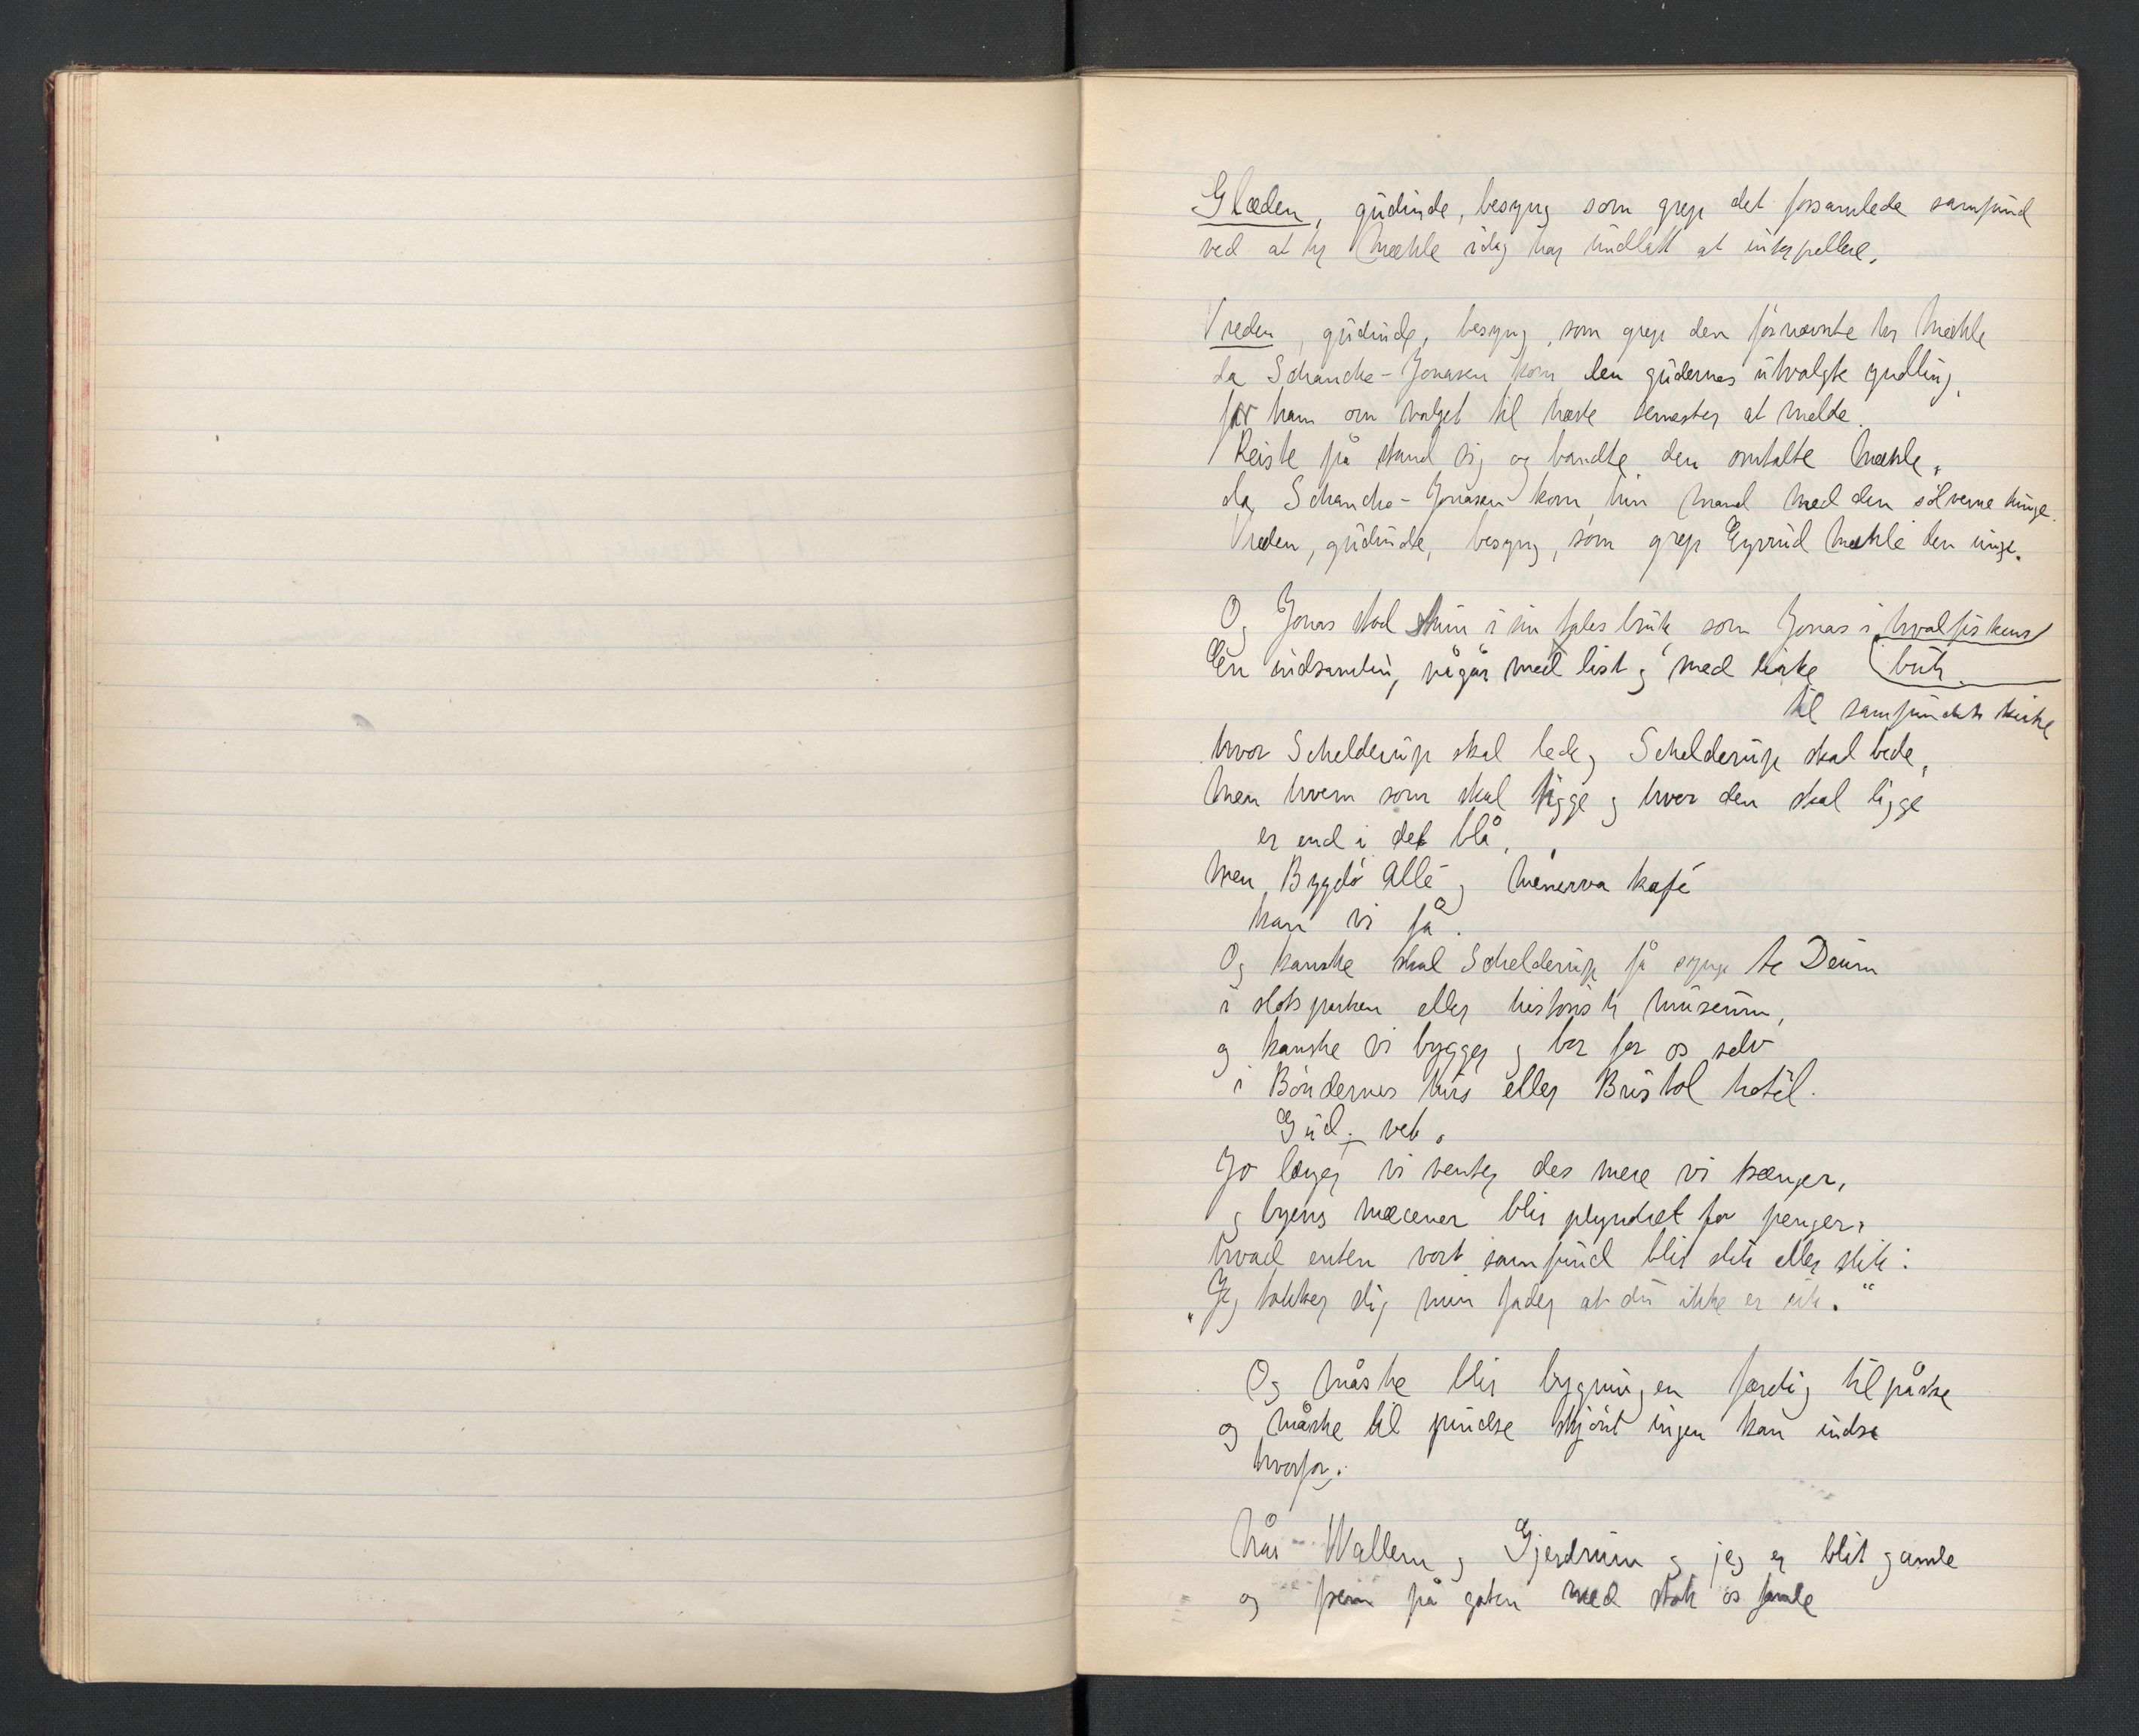 Glæden, gudinde, besyng som grep det forsamlede samfund
ved at hr Mæhle idag har undlatt at interpellere.
Vreden, gudinde, besyng, som grep den fornævnte hr Mæhle
da Schanche-Jonasen kom den gudernes utvalgte yndling,
for ham om valget til næste semester at melde.
Reiste på stand sig og bandte den omtalte Mæhle,
da Schanche-Jonasen kom hin mand med den sølverne tunge.
Vreden, gudinde, besyng, som grep Eyvind Mæhle den unge.
Og Jonas stod stum i sin tales bruk som Jonas i hvalfiskens
buk.
En indsamling pågår med list og med lirke
til samfundets kirke
hvor Schelderup skal lede og Schelderup skal bede,
men hvem som skal bygge og hvor den skal ligge
er end i det blå,
men Bygdø Allé og Minerva kafé
kan vi få.
Og kanske skal Schelderup få synge te Deum
i slotsparken eller historisk museum,
og kanske vi bygger og bor for os selv
i Bøndernes hus eller Bristol hotél.
Gud vet.
Jo længer vi venter des mere vi trænger,
og byens mæcener blir plyndret for penger,
hvad enten vort samfund blir slik eller slik:
"Jeg takker dig min fader at du ikke er rik."
Og måske blir bygningen færdig til påske
og måske til pindse skjønt ingen kan indse
hvorfor.
Når Wallem og Gjerdrum og jeg er blit gamle
og frem på gaten med stok os famle